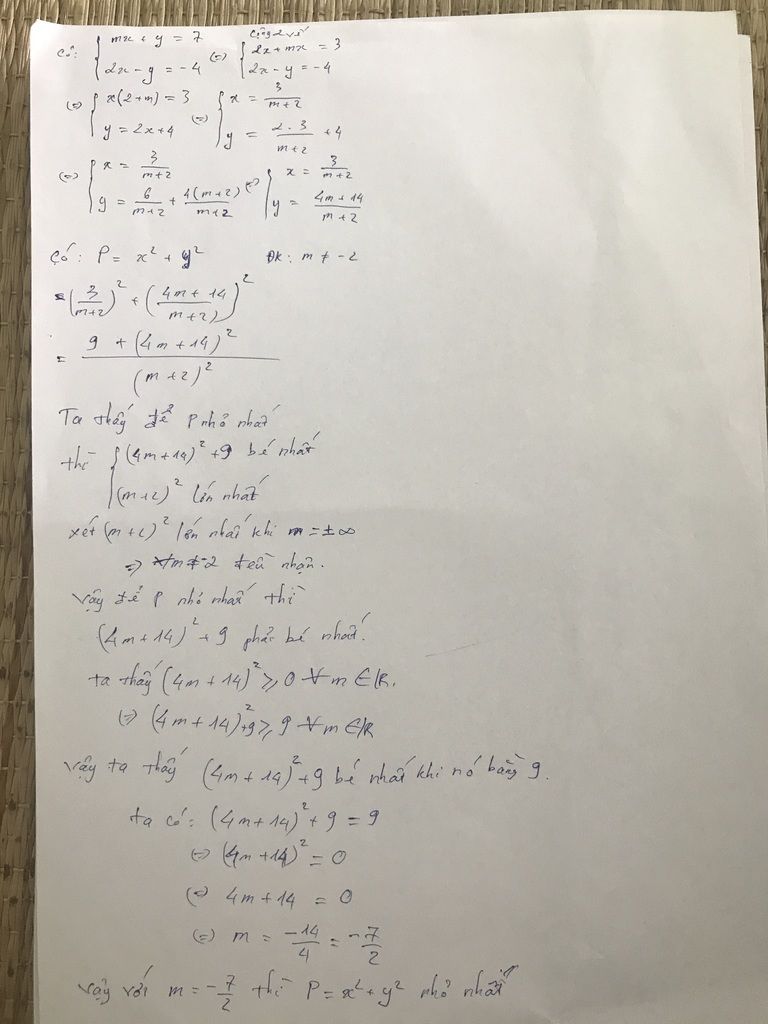 Có: { mx + y = 7
2x - y = -4
(=) { Cộng 2 vế
2x + mx = 3
2x - y = -4
(=) { x(2+m) = 3
y = 2x+4
(=) { x = 3/(m+2)
y = 2.3/(m+2) + 4
(=) { x = 3/(m+2)
y = 6/(m+2) + 4(m+2)/(m+2)
(=) { x = 3/(m+2)
y = (4m+14)/(m+2)
Có: P = x² + y² ĐK: m ≠ -2
= (3/(m+2))² + ((4m+14)/(m+2))²
= (9 + (4m+14)²)/(m+2)²
Ta thấy để P nhỏ nhất
thì { (4m+14)² + 9 bé nhất
(m+2)² lớn nhất
xét (m+2)² lớn nhất khi m = ±∞
=> ∀m ≠ -2 đều nhận.
Vậy để P nhỏ nhất thì
(4m+14)² + 9 phải bé nhất.
ta thấy (4m+14)² ≥ 0 ∀ m ∈ R.
(=) (4m+14)² + 9 ≥ 9 ∀ m ∈ R
Vậy ta thấy (4m+14)² + 9 bé nhất khi nó bằng 9.
ta có: (4m+14)² + 9 = 9
(=) (4m+14)² = 0
(=) 4m+14 = 0
(=) m = -14/4 = -7/2
Vậy với m = -7/2 thì P = x² + y² nhỏ nhất